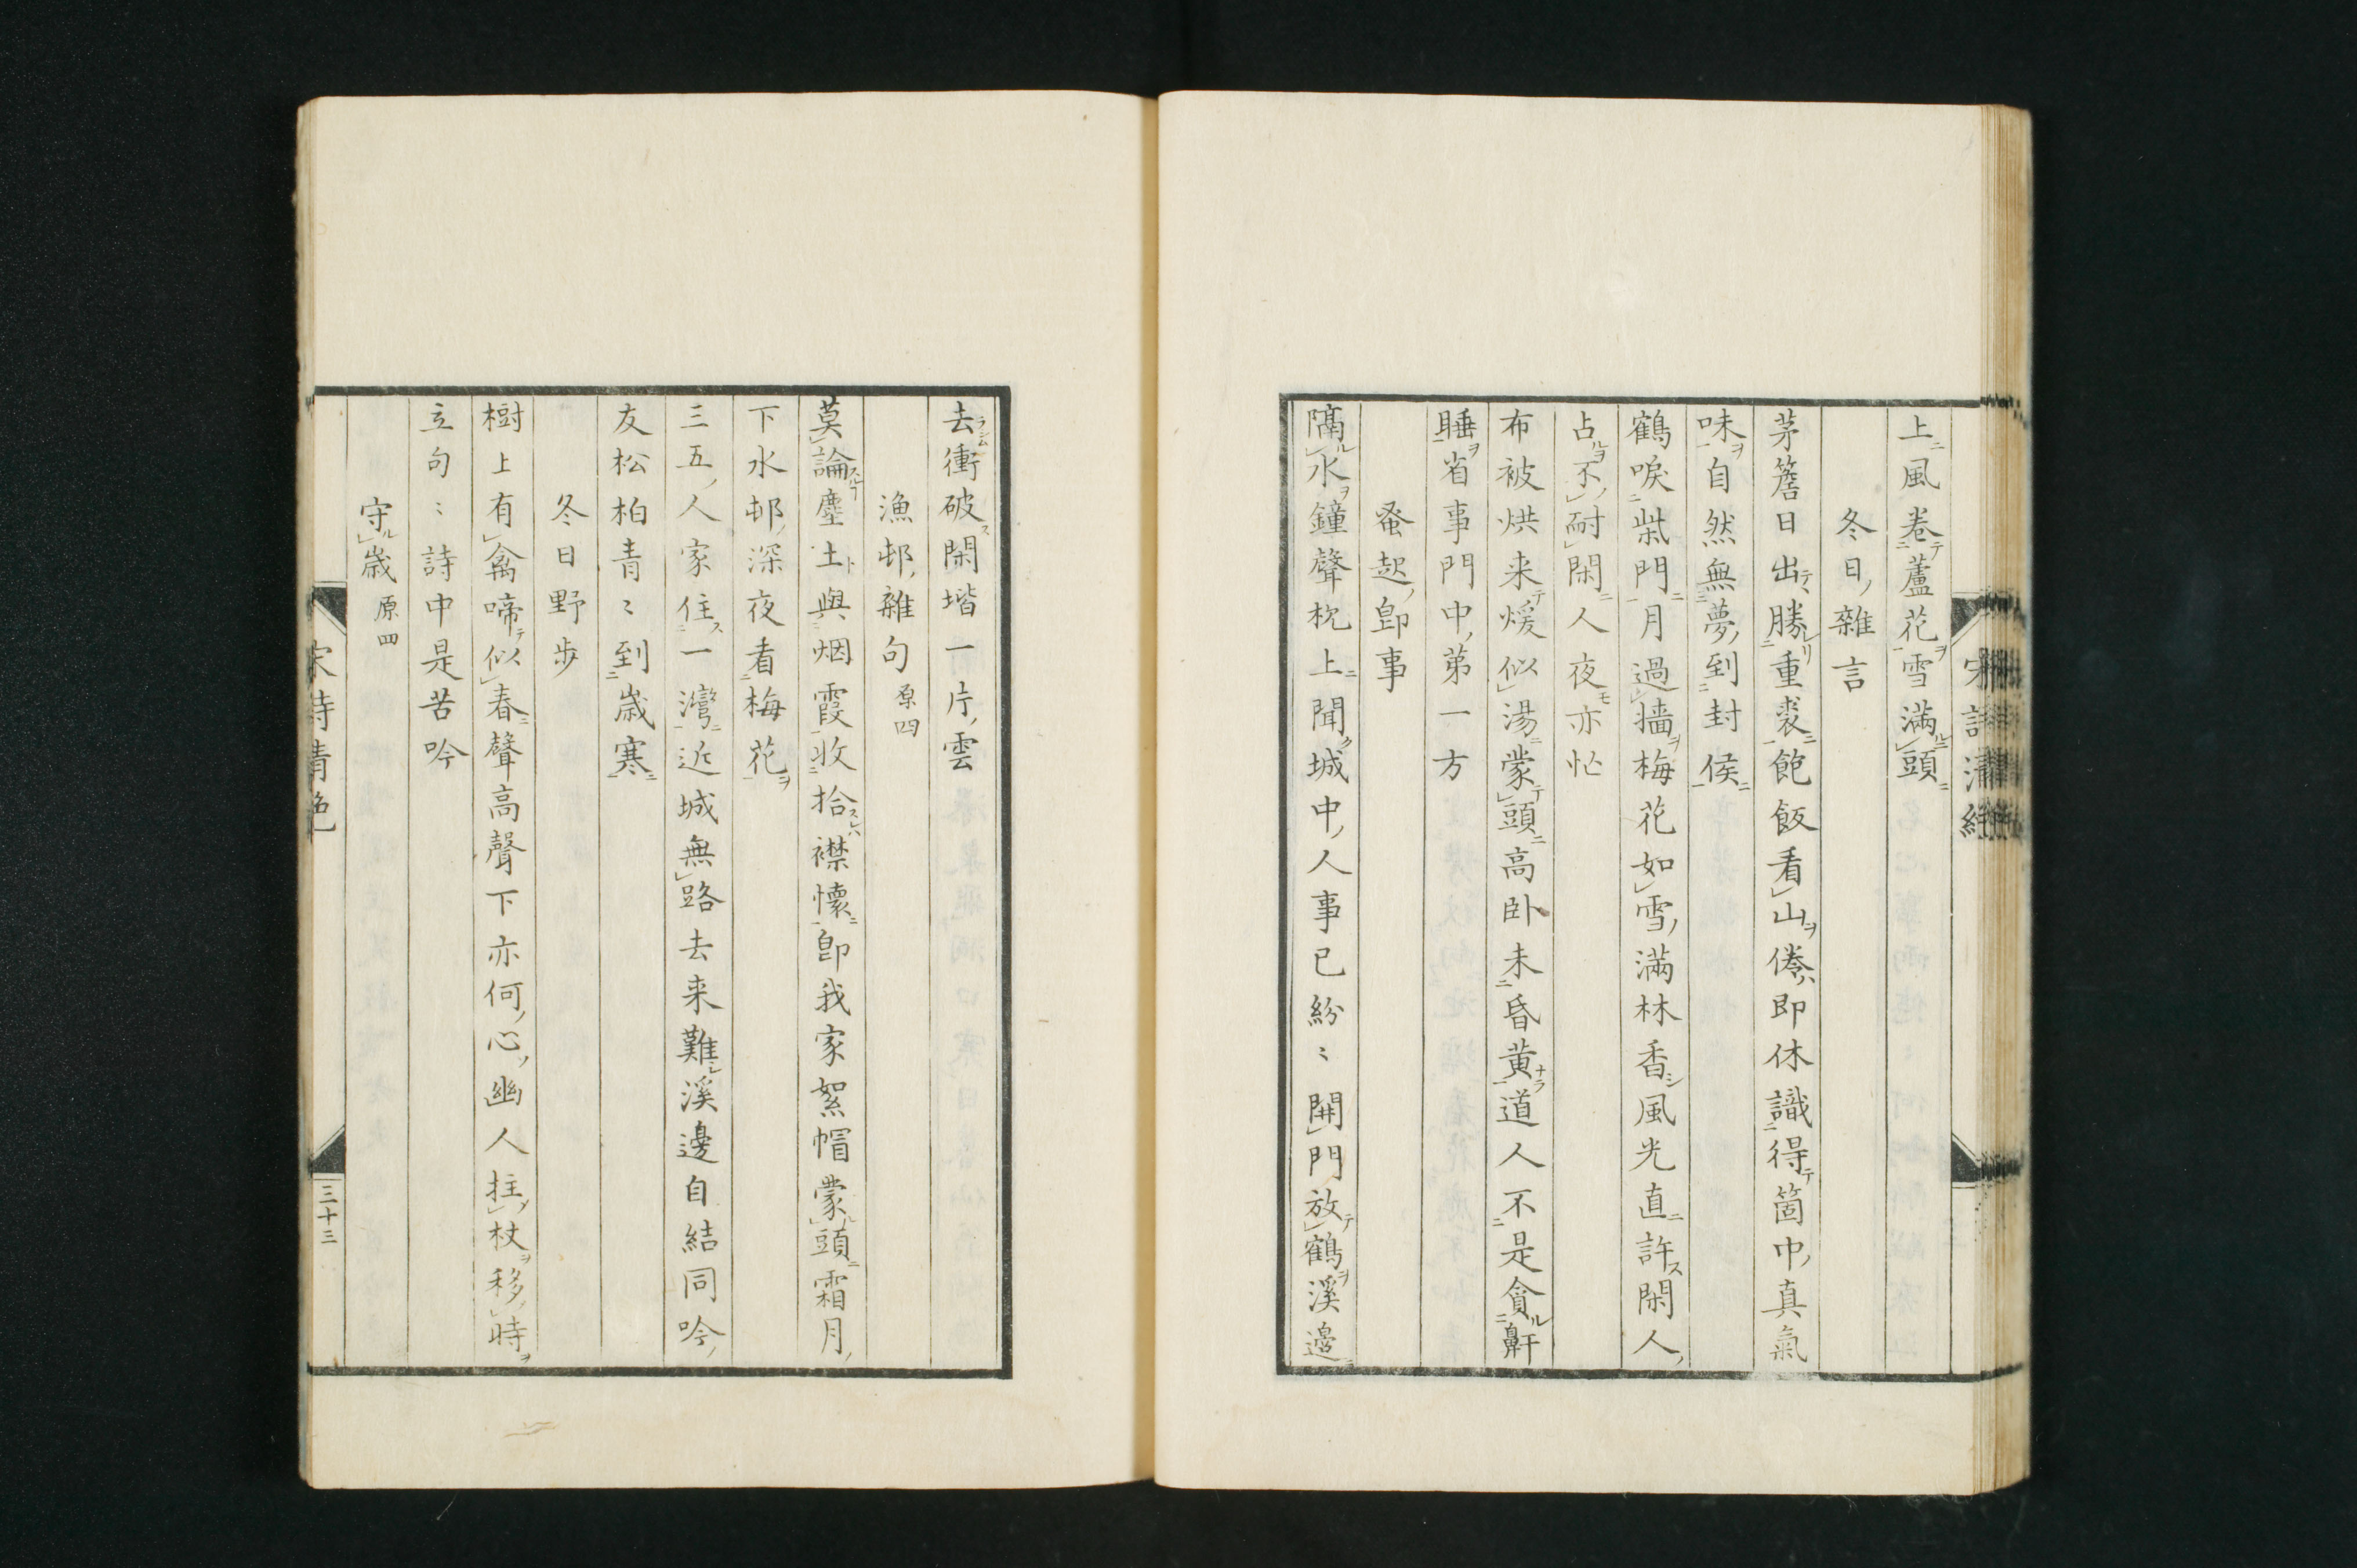 宋詩清絶
上風卷蘆花雪滿頭
冬日雜言
茅簷日出勝重裘飽飯看山倦即休識得箇中真氣
味自然無夢到封侯
鶴唳柴門月過墻梅花如雪滿林香風光直許閑人
占不耐閑人夜亦忙
布被烘来煖似湯蒙頭高卧未昏黄道人不是貪鼾
睡省事門中第一方
蚤起即事
隔水鐘聲枕上聞城中人事已紛〻開門放鶴溪邊
去衝破閑堦一片雲
漁邨雜句 原四
莫論塵土與烟霞收拾襟懷即我家絮帽蒙頭霜月
下水邨深夜看梅花
三五人家住一灣近城無路去来難溪邊自結同吟
友松柏青〻到歳寒
冬日野歩
樹上有禽啼似春聲高聲下亦何心幽人拄杖移時
立句〻詩中是苦吟
守歳 原四
宋詩清絶
三十三